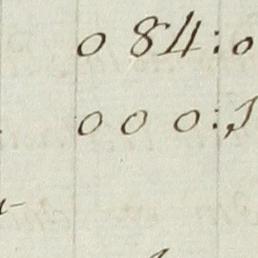 0 84:0
0 0 0: